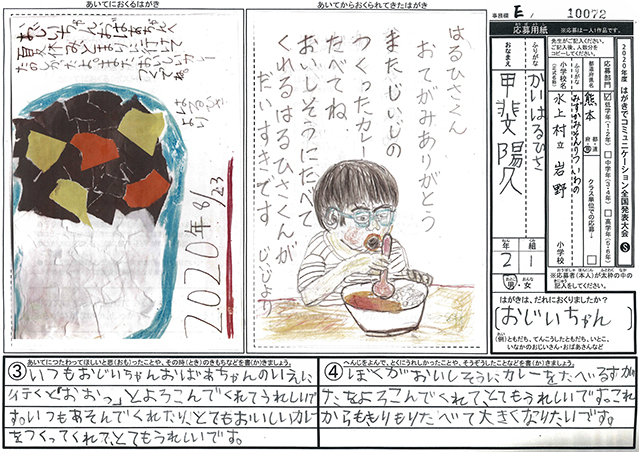 あいてにおくるはがき
おじいちゃんおばあちゃん
夏休みとまりに行けて
たのしかったよ。またおいしいカレー
つくってね。
はるひさ
より
2020年8/23
あいてからおくられてきたはがき
はるひさくん
おてがみありがとう
またじいじの
つくったカレー
たべてね
おいしそうにたべて
くれるはるひさくんが
だいすきです
じいじより
事務欄 E/ 10072
応募用紙
※応募は一人1作品です。
先生がご記入ください。
ご記入後、人数分を
コピーしてください。
2020年度 はがきでコミュニケーション全国発表大会 S
応募部門
低学年(1・2年)
中学年(3・4年)
高学年(5・6年)
都道府県名
熊本
都・道
府・県
クラス単位での応募
小学校名
(正式名称)
水上村立 岩野
小学校
ふりがな
かいはるひさ
おなまえ
甲斐陽久
2年
1組
男・女
※応募者(本人)が太枠の中の
記入をしてください。
はがきは、だれにおくりましたか?
おじいちゃん
(例)ともだち、てんこうしたともだち、いとこ、
いなかのおじいさん・おばあさんなど
あいてにつたわってほしいと思(おも)ったことや、その時(とき)のきもちなどを書(か)きましょう。
③いつもおじいちゃんおばあちゃんのいえに
行くと「おおっ」とよろこんでくれてうれしいで
す。いつもあそんでくれたり、とてもおいしいカレー
をつくってくれて、とてもうれしいです。
へんじをよんで、とくにうれしかったことや、そうぞうしたことなどを書(か)きましょう。
④ぼくがおいしそうに、カレーをたべるすが
たをよろこんでくれて、とてもうれしいです。これ
からももりもりたべて大きくなりたいです。